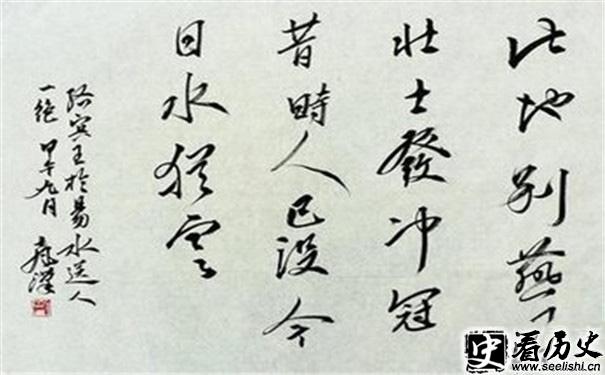 此地别燕
壮士發冲冠
昔時人已没今
日水猶寒
骆賓王於易水送人
一绝 甲午九月
史 看历史
www.seelishi.cn